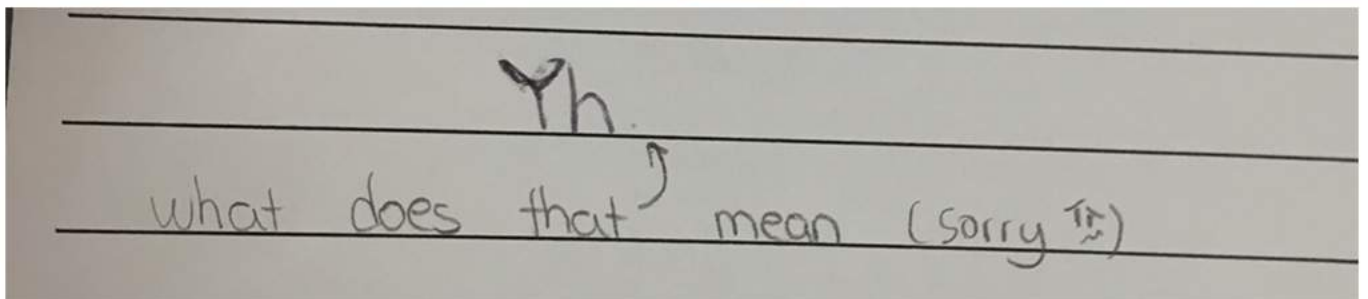 Yh.
what does that mean (sorry )